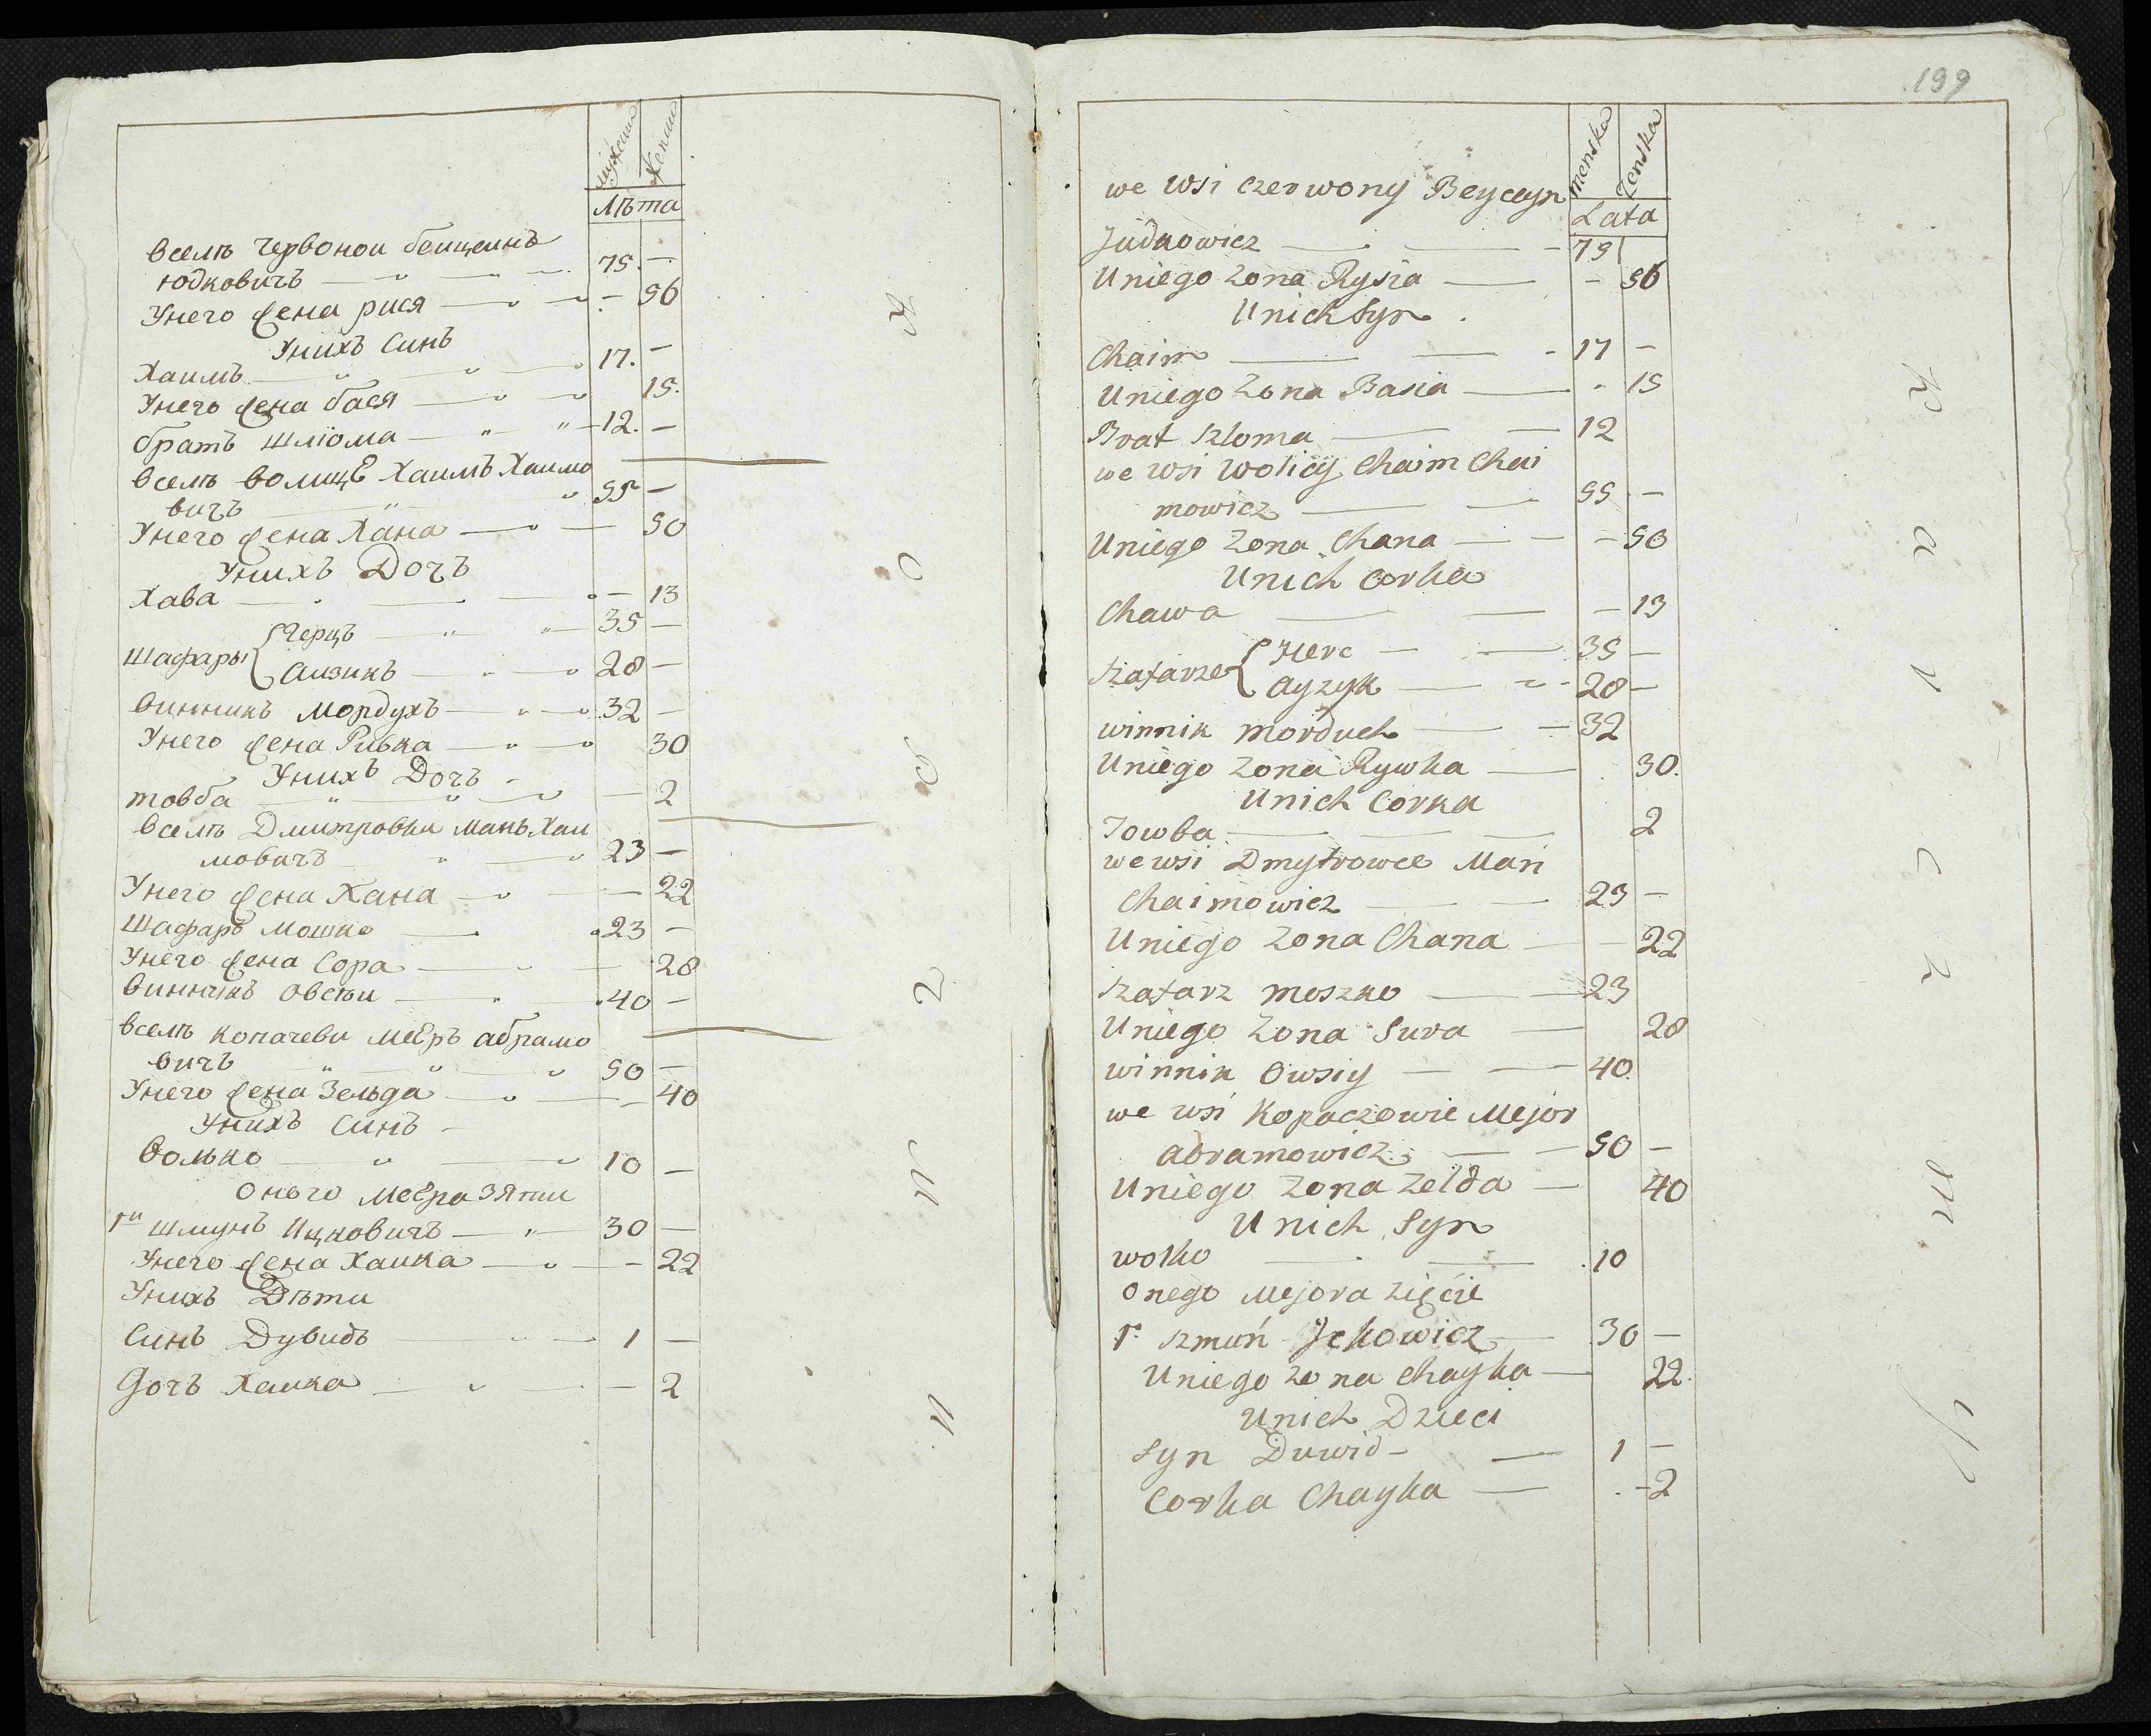 мужеска
женска
Лѣта
Вселѣ Червонои беицеинъ
Юдковичъ 75. —
Унего жена рися — 56
Унихъ Синъ
Хаимъ 17. —
Унего жена бася 15.
братъ Шліома 12. —
Вселѣ волице Хаимъ Хаимо
вичъ 55 —
Унего жена Хана 50
Унихъ Дочъ
Хава — 13
Шафары { Герцъ 35 —
Аизикъ 28 —
Винникъ Мордухъ 32 —
Унего жена Ривка 30
Унихъ Дочъ
товба — 2
вселѣ Дмитровки Манъ Хаи
мовичъ 23 —
Унего жена Хана — 22
Шафаръ Мошко 23 —
Унего жена Сора 28
Винникъ Овсѣи 40 —
вселѣ Копачеви Мееръ абрамо
вичъ 50 —
Унего жена Зельда — 40
Унихъ Синъ
Волько 10 —
Онего Меера Зяти
1и Шмунъ Ицковичъ 30 —
Унего жена Хаика — 22
Унихъ Дѣти
Синъ Дувидъ 1 —
Дочъ Хаика — 2
199
menska
żenska
Lata
we wsi czerwony Beyceyn
Judkowicz 75
Uniego żona Rysia — 56
Unich Syn
Chaim 17 —
Uniego żona Basia 15
Brat Szloma 12
we wsi Wolicy Chaim Chai
mowicz 55 —
Uniego żona Chana — 50
Unich Corka
Chawa — 13
Szafarze { Herc 35 —
Ayzyk 28 —
winnik Morduch 32
Uniego żona Rywka 30.
Unich Corka
Towba 2
we wsi Dmytrowce Mań
Chaimowicz 23 —
Uniego żona Chana — 22
Szafarz Moszko 23
Uniego żona Sura 28
winnik Owsiy 40.
we wsi Kopaczowie Mejor
abramowicz 50 —
Uniego żona Zelda 40
Unich Syn
Wolko 10
Onego Mejora zięcie
1. Szmuń Jckowicz 30 —
Uniego żona Chayka 22.
Unich Dzieci
Syn Duwid 1 —
Corka Chayka — 2